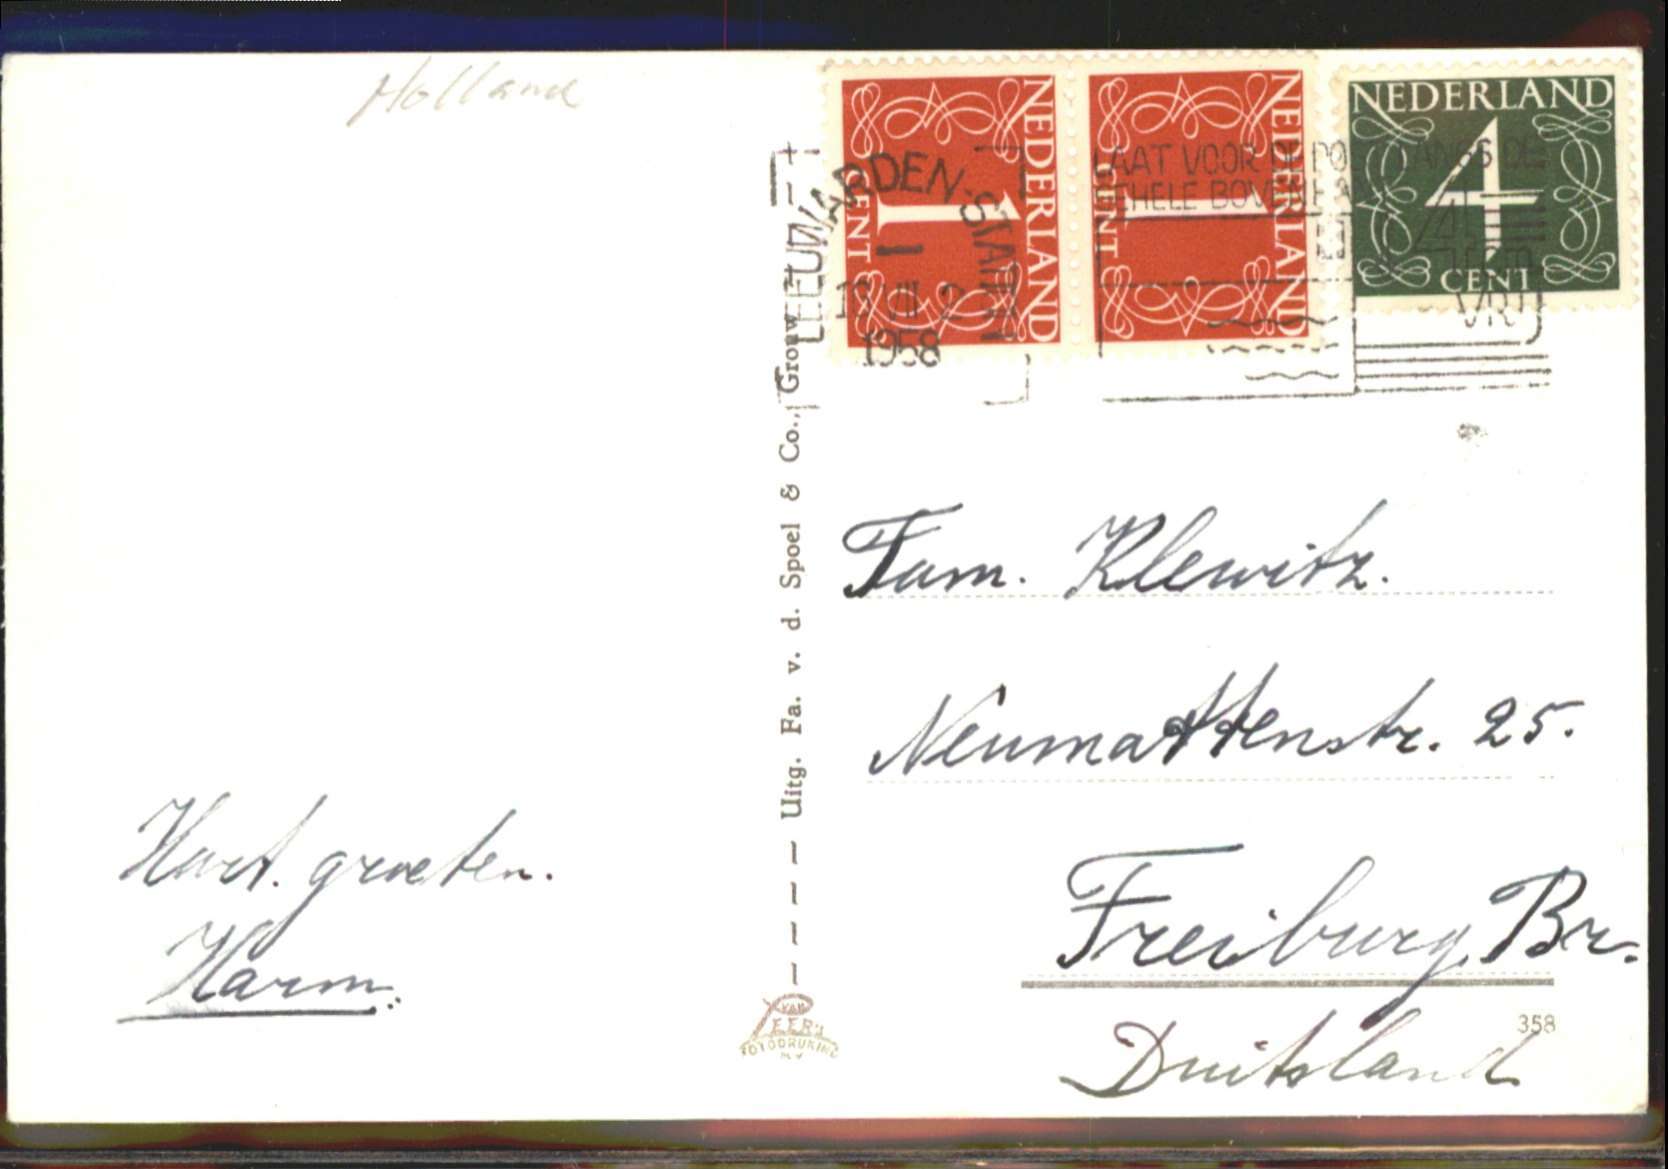 Holland
NEDERLAND
1
CENT
NEDERLAND
1
CENT
NEDERLAND
4
CENT
LEEUWARDEN-STATION
VII
1958
LAAT VOOR DE POST LANGS DE
GEHELE BOVENKANT
VRIJ
Uitg. Fa. v. d. Spoel & Co., Grouw
Fam. Klewitz.
Neumattenstr. 25.
Freiburg, Br.
Duitsland
Hart. groeten.
Harm.
VAN
PEER'S
FOTODRUK INC
N.V.
358